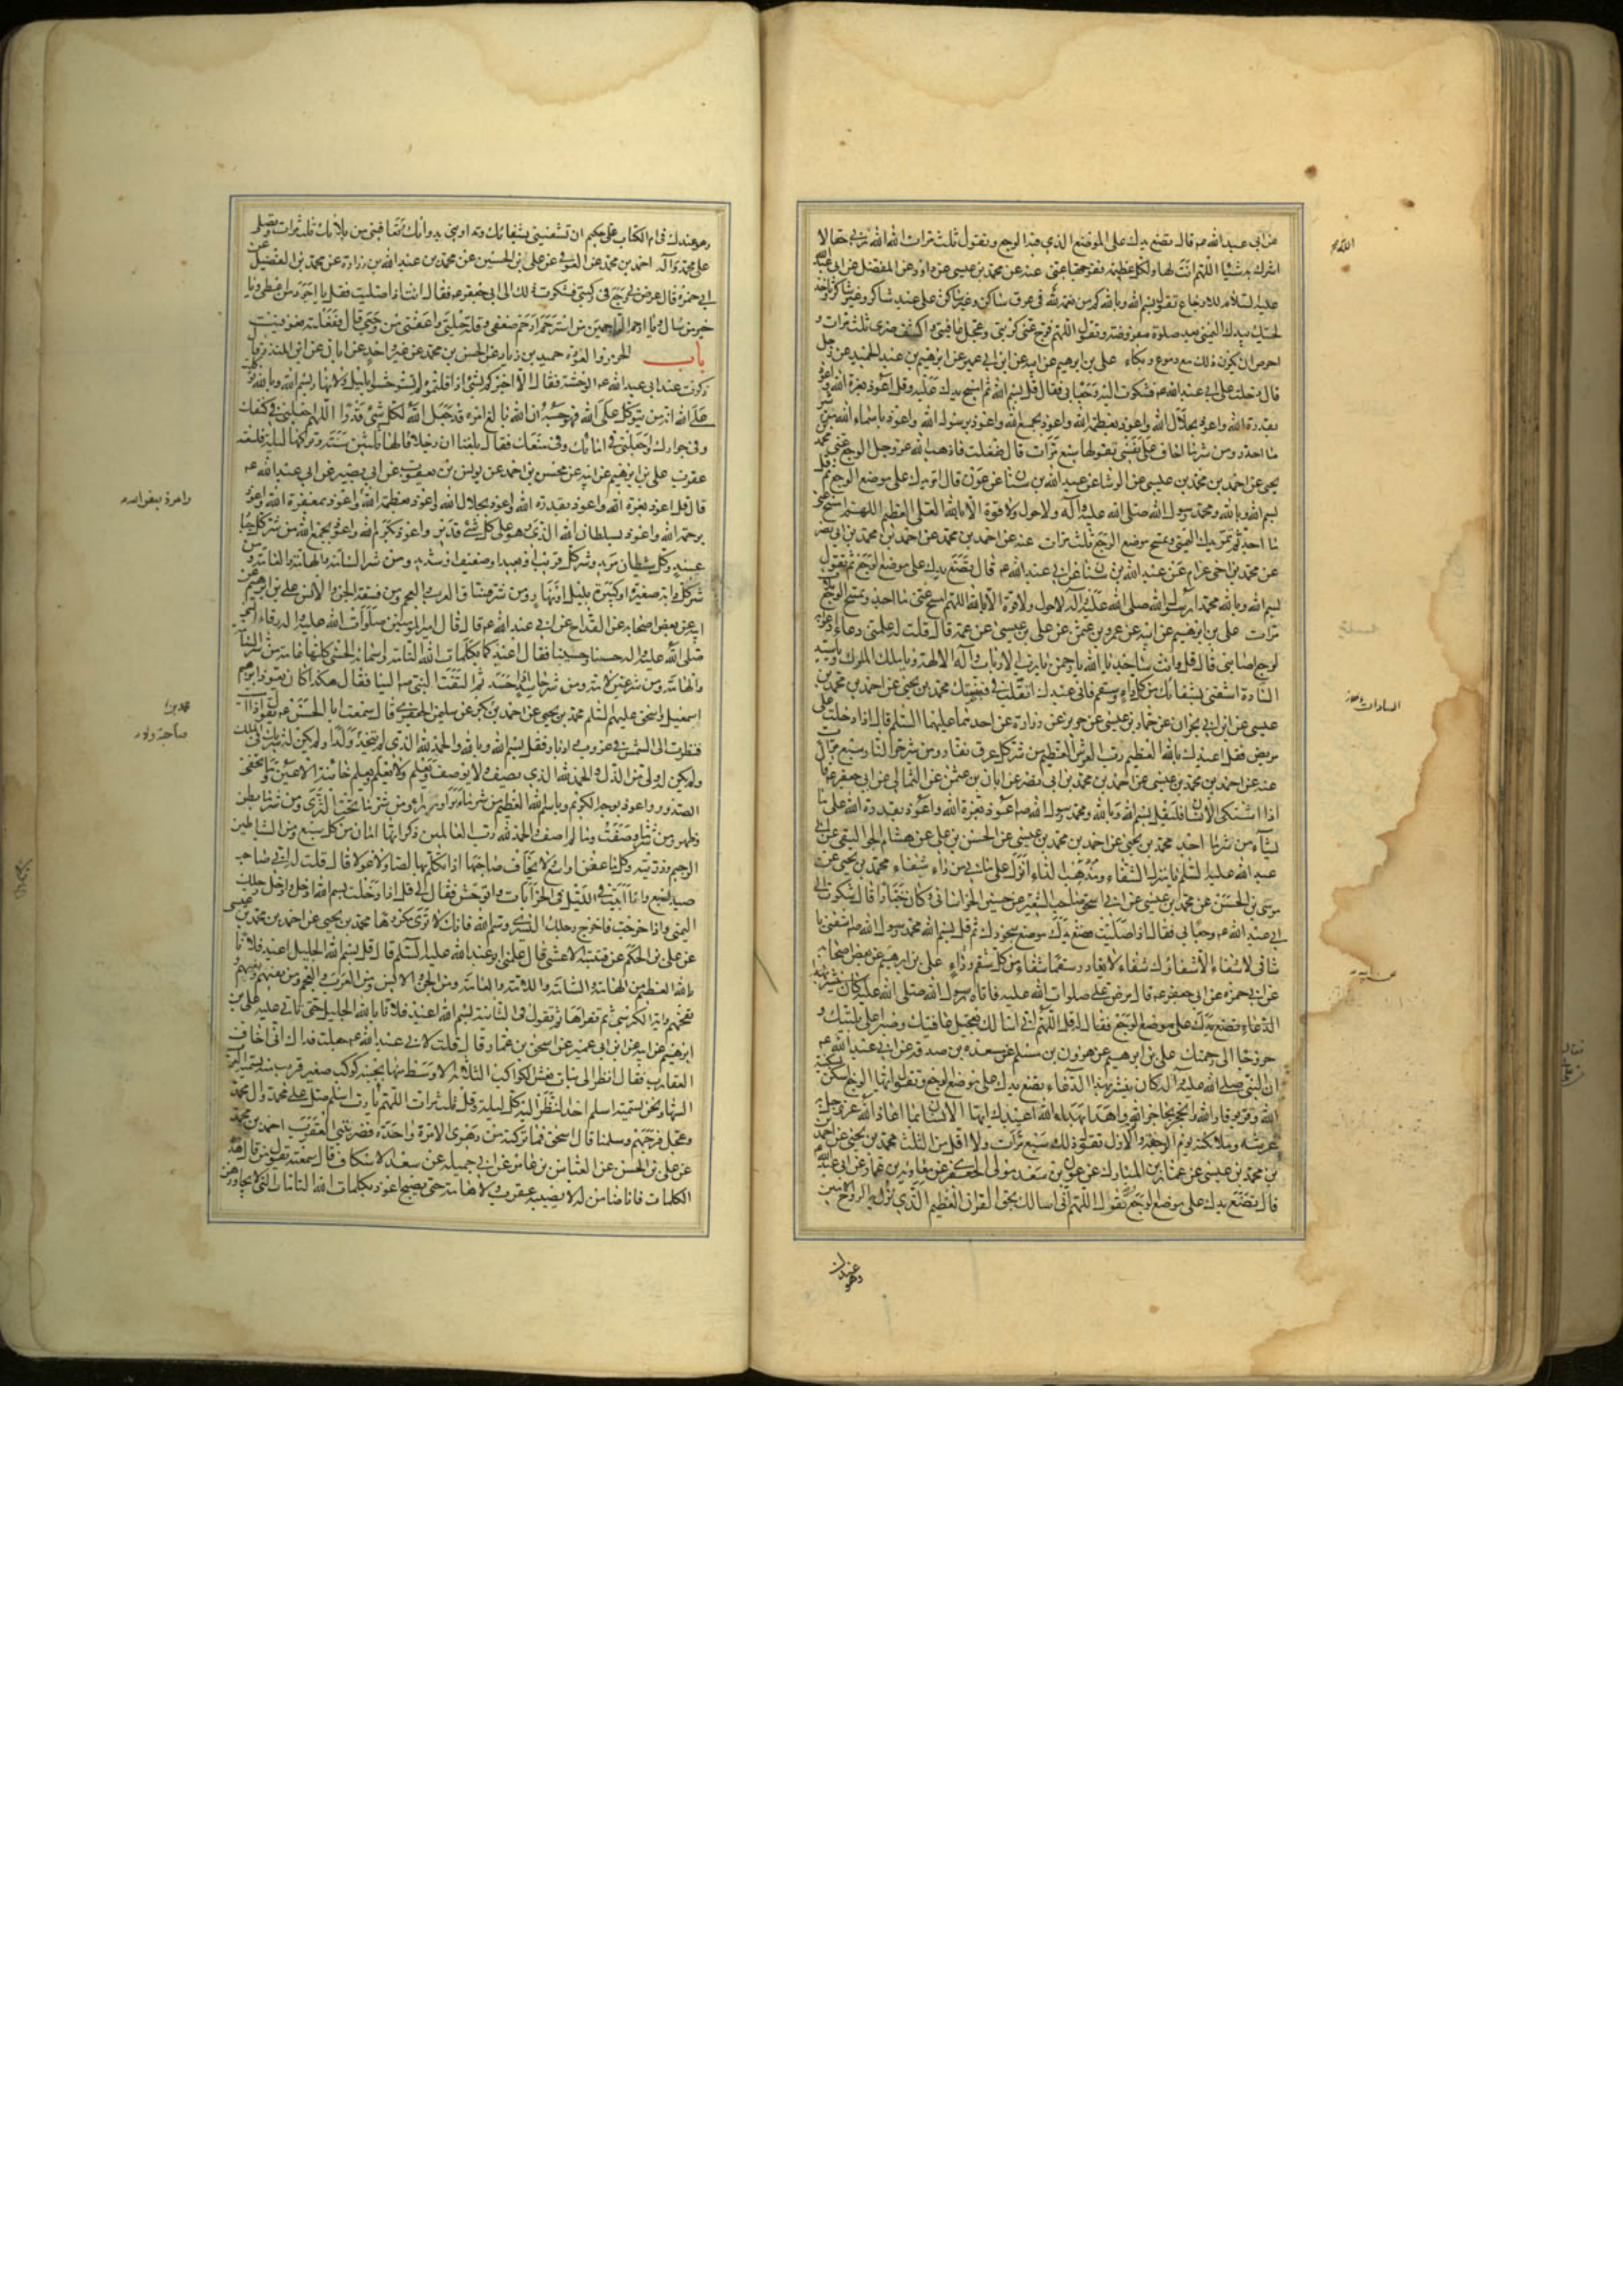 عن ابي عبد الله ع قال تضع يدك على الموضع الذي فيه الوجع وتقول ثلث مرات الله الله ربي حقا لا
اشرك به شيئا اللهم انت لها ولكل عظيمة ففرجها عني عنه عن محمد بن عيسى عن داود عن المفضل عن ابي عبد الله
عليه السلام للاوجاع تقول بسم الله وبالله كم من نعمة لله في عرق ساكن وغير ساكن على عبد شاكر وغير شاكر وتاخذ
لحيتك بيدك اليمنى بعد صلوة مفروضة وتقول اللهم فرج عني كربتي وعجل عافيتي واكشف ضري ثلث مرات و
احرص ان يكون ذلك مع دموع وبكاء علي بن ابرهيم عن ابيه عن ابن ابي عمير عن ابرهيم بن عبد الحميد عن رجل
قال دخلت على ابي عبد الله ع فشكوت اليه وجعا بي فقال قل بسم الله ثم امسح يدك عليه وقل اعوذ بعزة الله واعوذ
بقدرة الله واعوذ بجلال الله واعوذ بعظمة الله واعوذ بجمع الله واعوذ برسول الله واعوذ باسماء الله من شر
ما احذر ومن شر ما اخاف على نفسي تقولها سبع مرات قال ففعلت فاذهب الله عز وجل الوجع عني محمد بن
يحيى عن احمد بن محمد بن عيسى عن الوشا عن عبد الله بن سنان عن عون قال امر يدك على موضع الوجع ثم قل
بسم الله وبالله ومحمد رسول الله صلى الله عليه وآله ولا حول ولا قوة الا بالله العلي العظيم اللهم امسح عني
ما اجد ثم تمر يدك اليمنى وتمسح موضع الوجع ثلث مرات عنه عن احمد بن محمد عن احمد بن محمد بن ابي نصر
عن محمد بن اخي غرام عن عبد الله بن سنان عن ابي عبد الله ع قال تضع يدك على موضع الوجع ثم تقول
بسم الله وبالله محمد رسول الله صلى الله عليه وآله لا حول ولا قوة الا بالله اللهم امسح عني ما اجد وتمسح الوجع ثلث
مرات علي بن ابرهيم عن ابيه عن عمرو بن عثمن عن علي بن عيسى عن عمه قال قلت له علمني دعاء ادعو به
لوجع اصابني قال قل وانت ساجد يا الله يا رحمن يا رب الارباب واله الالهة ويا ملك الملوك ويا سيد
السادة اشفني بشفائك من كل داء وسقم فاني عبدك اتقلب في قبضتك محمد بن يحيى عن احمد بن محمد بن
عيسى عن ابن ابي نجران عن حماد بن عيسى عن حريز عن زرارة عن احدهما عليهما السلم قال اذا دخلت على
مريض فقل اعيذك بالله العظيم رب العرش العظيم من شر كل عرق نفار ومن شر حر النار سبع مرات
عنه عن احمد بن محمد بن عيسى عن احمد بن محمد بن ابي نصر عن ابان بن عثمن عن الثمالي عن ابي جعفر ع قال
اذا اشتكى الانسان فليقل بسم الله وبالله ومحمد رسول الله ص اعوذ بعزة الله واعوذ بقدرة الله على ما
يشآء من شر ما اجد محمد بن يحيى عن احمد بن محمد بن عيسى عن الحسن بن علي عن هشام الجواليقي عن ابي
عبد الله عليه السلم يا منزل الشفاء ومذهب الداء انزل على ما بي من داء شفاء محمد بن يحيى عن
موسى بن الحسن عن محمد بن عيسى عن ابي اسحق صاحب الشعير عن حسين الخراساني وكان خبازا قال شكوت الى
ابي عبد الله ع وجعا بي فقال اذا صليت فضع يدك موضع سجودك ثم قل بسم الله محمد رسول الله ص اشفني يا
شافي لا شفاء الا شفاؤك شفاء لا يغادر سقما شفاء من كل سقم وداء علي بن ابرهيم عن بعض اصحابه
عن ابي حمزه عن ابي جعفر ع قال مرض علي صلوات الله عليه فاتاه رسول الله صلى الله عليه
الدعاء تضع يدك على موضع الوجع فقال له قل اللهم اني اسالك تعجيل عافيتك وصبرا على بليتك و
خروجا الى رحمتك علي بن ابرهيم عن هرون بن مسلم عن مسعده بن صدقه عن ابي عبد الله ع
ان النبي صلى الله عليه وآله كان ينشر بهذا الدعاء تضع يدك على موضع الوجع وتقول ايها الوجع اسكن بسكينة
الله وقر بوقار الله وانحجز بحاجز الله واهدا بهداء الله اعيذك ايها الانسان بما اعاذ الله عز وجل به
عرشه وملائكته يوم الرجفة والزلازل تقول ذلك سبع مرات ولا اقل من الثلث محمد بن يحيى عن احمد
بن محمد بن عيسى عن عمار بن المبارك عن عون بن سعد مولى الجعفري عن معاوية بن عمار عن ابي عبد الله ع
قال تضع يدك على موضع الوجع وتقول اللهم اني اسالك بحق القران العظيم الذي نزل به الروح الامين
وهو عندك
وهو عندك في ام الكتاب علي حكيم ان تشفيني بشفائك وتداويني بدوائك وتعافيني من بلائك ثلث مرات وتصلي
على محمد وآله احمد بن محمد عن العوفي عن علي بن الحسين عن محمد بن عبد الله بن زرارة عن محمد بن الفضيل عن
ابي حمزه قال عرض لي وجع في ركبتي فشكوت ذلك الى ابي جعفر ع فقال اذا انت صليت فقل يا اجود من اعطى ويا
خير من سئل ويا ارحم الراحمين من استرحم ارحم ضعفي وقلة حيلتي واعفني من وجعي قال ففعلته فعوفيت
باب الحرز والعوذة حميد بن زياد عن الحسن بن محمد عن غير واحد عن ابان عن ابن المنذر قال
ذكرت عند ابي عبد الله ع الوحشة فقال الا اخبركم بشيء اذا قلتموه لم تستوحشوا بليل ولا نهار بسم الله وبالله وتوكلت
على الله انه من يتوكل على الله فهو حسبه ان الله بالغ امره قد جعل الله لكل شيء قدرا اللهم اجعلني في كنفك
وفي جوارك واجعلني في امانك وفي منعك فقال بلغنا ان رجلا قالها ثلثين سنة وتركها ليلة فلسعته
عقرب علي بن ابرهيم عن ابيه عن محسن بن احمد عن يونس بن يعقوب عن ابي بصير عن ابي عبد الله ع
قال قل اعوذ بعزة الله واعوذ بقدرة الله واعوذ بجلال الله واعوذ بعظمة الله واعوذ بمغفرة الله واعوذ
برحمة الله واعوذ بسلطان الله الذي هو على كل شيء قدير واعوذ بكرم الله واعوذ بجمع الله من شر كل جبار
عنيد وكل شيطان مريد وشر كل قريب او بعيد او ضعيف او شديد ومن شر السامة والهامة والعامة ومن
شر كل دابة صغيرة او كبيرة بليل او نهار ومن شر فساق العرب والعجم ومن شر فسقة الجن والانس علي بن ابرهيم عن
ابيه عن بعض اصحابه عن القداح عن ابي عبد الله ع قال قال امير المومنين صلوات الله عليه وآله رقى النبي
صلى الله عليه وآله حسنا وحسينا فقال اعيذكما بكلمات الله التامة واسمائه الحسنى كلها عامة من شر السامة
والهامة ومن شر عين لامة ومن شر حاسد اذا حسد ثم التفت النبي ص الينا فقال هكذا كان يعوذ ابرهيم
اسمعيل واسحق عليهم السلم محمد بن يحيى عن احمد بن بكر عن سليمن الجعفري قال سمعت ابا الحسن ع يقول اذا
فنظرت الى الشمس في غروب وادبار فقل بسم الله وبالله والحمد لله الذي لم يتخذ ولدا ولم يكن له شريك في الملك
ولم يكن له ولي من الذل والحمد لله الذي يصف ولا يوصف ويعلم ولا يعلم يعلم خائنة الاعين وما تخفي
الصدور واعوذ بوجه الله الكريم وباسم الله العظيم من شر ما ومن شر ما تحت الثرى ومن شر ما بطن
وظهر ومن شر ما وصفت وما لم اصف والحمد لله رب العالمين ذكر انها امان من كل سبع ومن الشيطان
الرجيم وذريته وكل ما عض او لسع ولا يخاف صاحبها اذا تكلم بها لصا ولا غولا قال قلت له اني صاحب
صيد السبع وانا ابيت في الليل في الخرابات واتوحش فقال لي قل اذا دخلت بسم الله ادخل وادخل رجلك
اليمنى واذا خرجت فاخرج رجلك اليسرى وسم الله فانك لا ترى مكروها محمد بن يحيى عن احمد بن محمد بن عيسى
عن علي بن الحكم عن قتيبة الاعشى قال علمني ابو عبد الله عليه السلم قال قل بسم الله الجليل اعيذ فلانا
بالله العظيم من الهامة والسامة واللامة والعامة ومن الجن والانس ومن العرب والعجم ومن نفثهم وبغيهم و
نفخهم وآية الكرسي ثم تقراها ثم تقول في الثانية بسم الله اعيذ فلانا بالله الجليل حتى تاتي عليه علي بن
ابرهيم عن ابيه عن ابن ابي عمير عن اسحق بن عمار قال قلت لابي عبد الله ع جعلت فداك اني اخاف
العقارب فقال انظر الى بنات نعش الكواكب الثلاثة الاوسط منها بجنبه كوكب صغير قريب منه تسميه العرب
السها ونحن نسميه اسلم احد النظر اليه كل ليلة وقل ثلث مرات اللهم يا رب اسلم صل على محمد وآل محمد
وعجل فرجهم وسلمنا قال اسحق فما تركته من دهري الا مرة واحدة فضربتني العقرب احمد بن محمد
عن علي بن الحسن عن العباس بن عامر عن ابي جميله عن سعد الاسكاف قال سمعته يقول من قال هذه
الكلمات فانا ضامن له الا يصيبه عقرب ولا هامة حتى يصبح اعوذ بكلمات الله التامات التي لا يجاوزهن